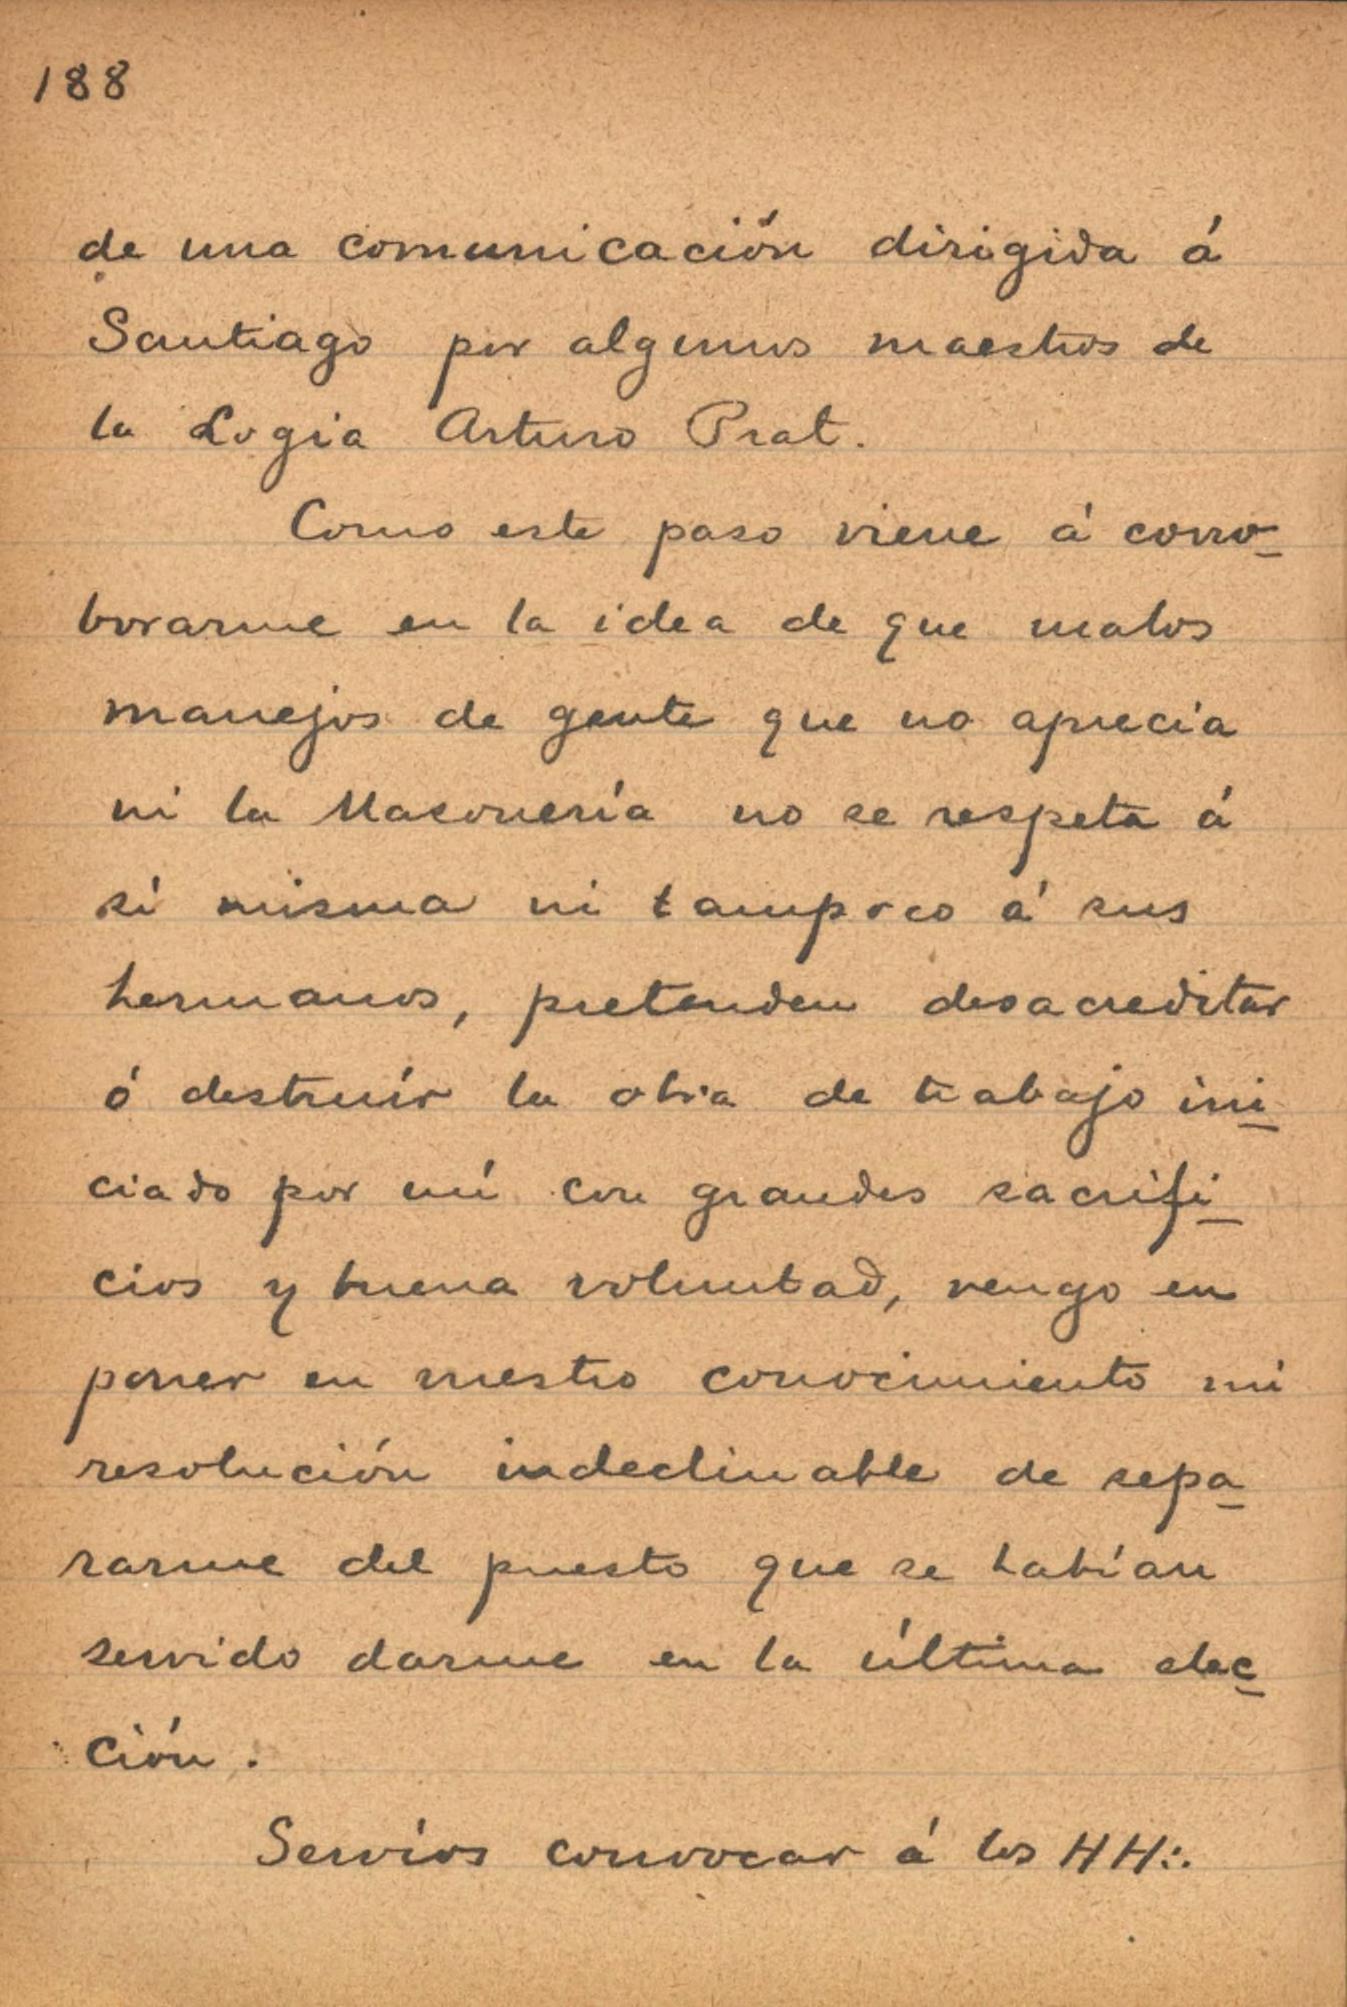 188
de una comunicación dirigida á
Santiago por algunos maestros de
la Logia Arturo Prat.
Como este paso viene á corro-
borarme en la idea de que malos
manejos de gente que no aprecia
ni la Masonería no se respeta á
sí misma ni tampoco á sus
hermanos, pretenden desacreditar
ó destruír la obra de trabajo ini-
ciado por mí con grandes sacrifi-
cios y buena voluntad, vengo en
poner en vuestro conocimiento mi
resolución indeclinable de sepa-
rarme del puesto que se habían
servido darme en la última elec-
ción.
Servíos convocar á los HH∴